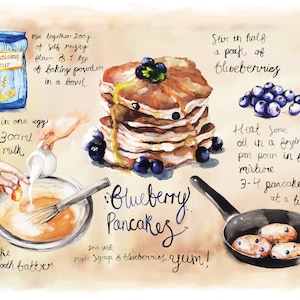 mix together 200g
of self raising
flour & 1 tsp
of baking powder
in a bowl
Stir in half
a pack of
blueberries
in one egg
300ml
milk
Heat some
oil in a frying
pan pour in
mixture
3-4 pancakes
at a
Blueberry
Pancakes
batter
Serve with
maple syrup & blueberries
yum!